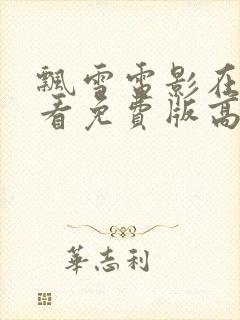 飄雪雷影在
看免費版高
華志利